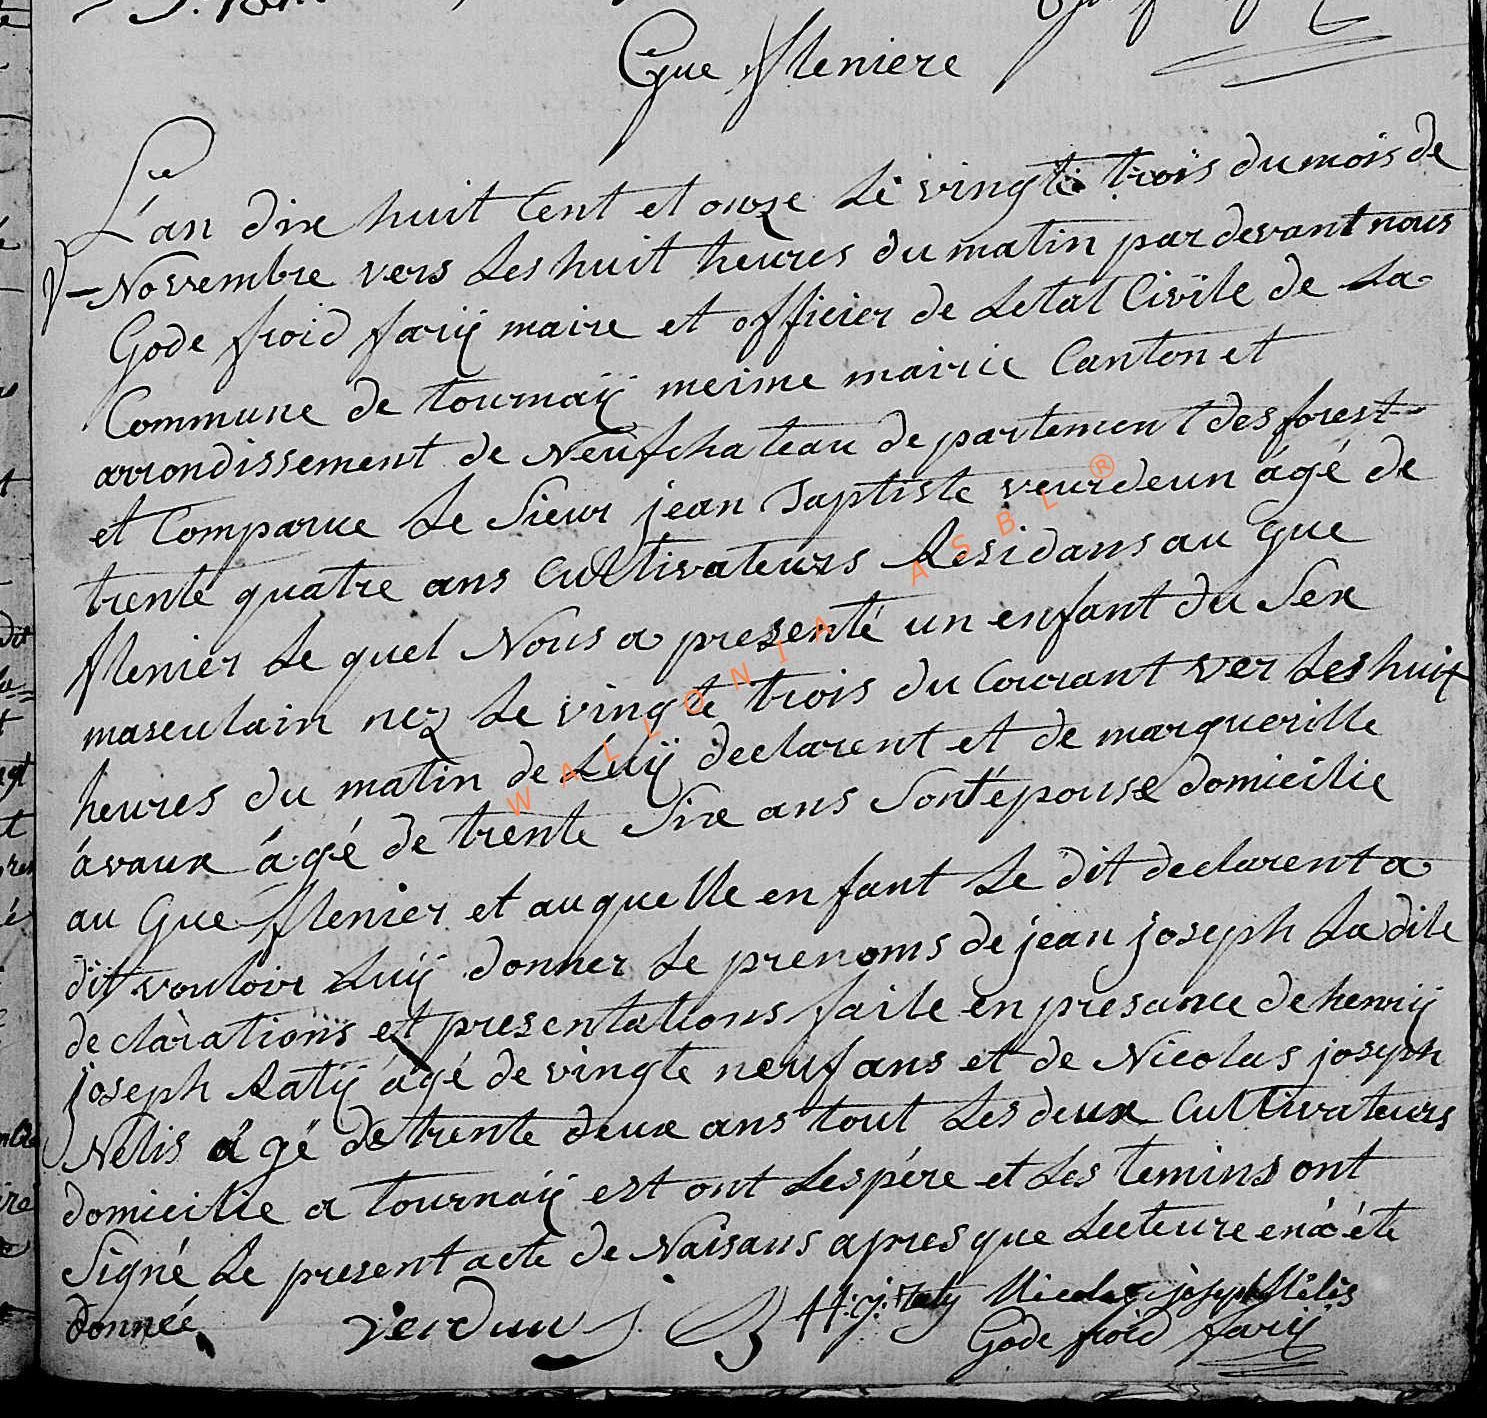 Gue Meniere
L'an dix huit Cent et onze Le vingte trois du mois de
Novembre vers Les huit heures du matin par devant nous
Gode froid fariÿ maire et officier de Letat Civile de La
Commune de tournaÿ meime mairie Canton et
arrondissement de Neufchateau departement des forest
et Comparue Le Sieur jean Baptiste verdeun âgé de
trente quatre ans Cultivateurs Residans au Gue
Menier Le quel Nous a presenté un enfant du Sex
masculain nez Le vingte trois du Courant ver Les huit
heures du matin de Luÿ declarent et de marguerille
avaux âgé de trente Six ans Sont épouse domicilie
au Gue Menier et auquelle enfant Le dit declarent a
dit vouloir Luÿ donner Le prenoms de jean joseph La dite
declarations et presentations faite en presance de henrÿ
joseph Ratÿ âgé de vingte neuf ans et de Nicolas joseph
Nelis âgé de trente deux ans tout Les deux Cultivateurs
domicilie a tournaÿ est ont Les pére et Les temins ont
Signé Le present acte de Naisans apres que Lecteure en à éte
donnée
verdun J. B H: j: Raty Nicolas joseph Nelis
Gode froid fariÿ
WALLONIA ASBL ®